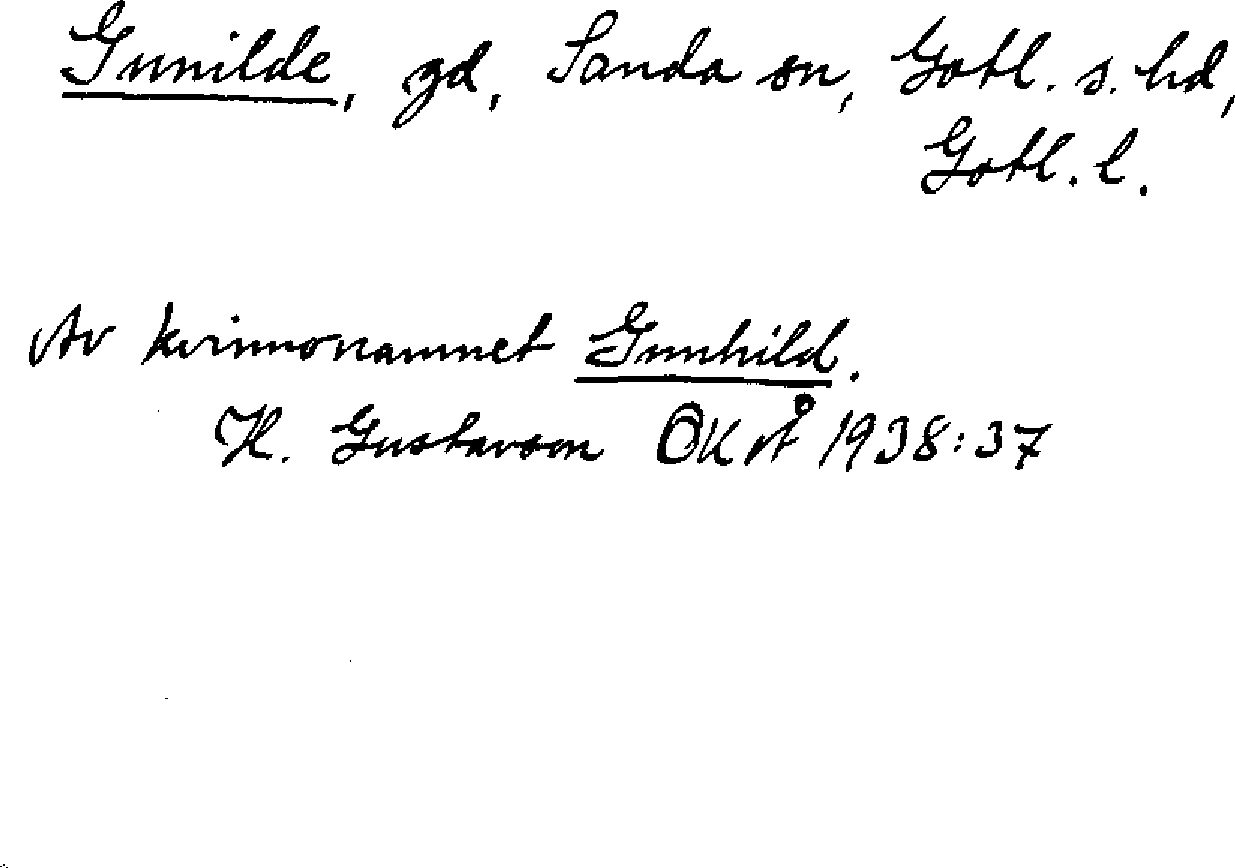 Gunilde, gd, Sanda sn, Gotl. s. hd,
Gotl. l.
Av kvinnonamnet Gunnhild.
H. Gustavson OKvÅ 1938:37